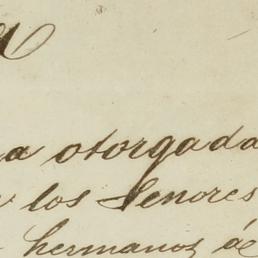 a otorgada
los Senores
hermanos de